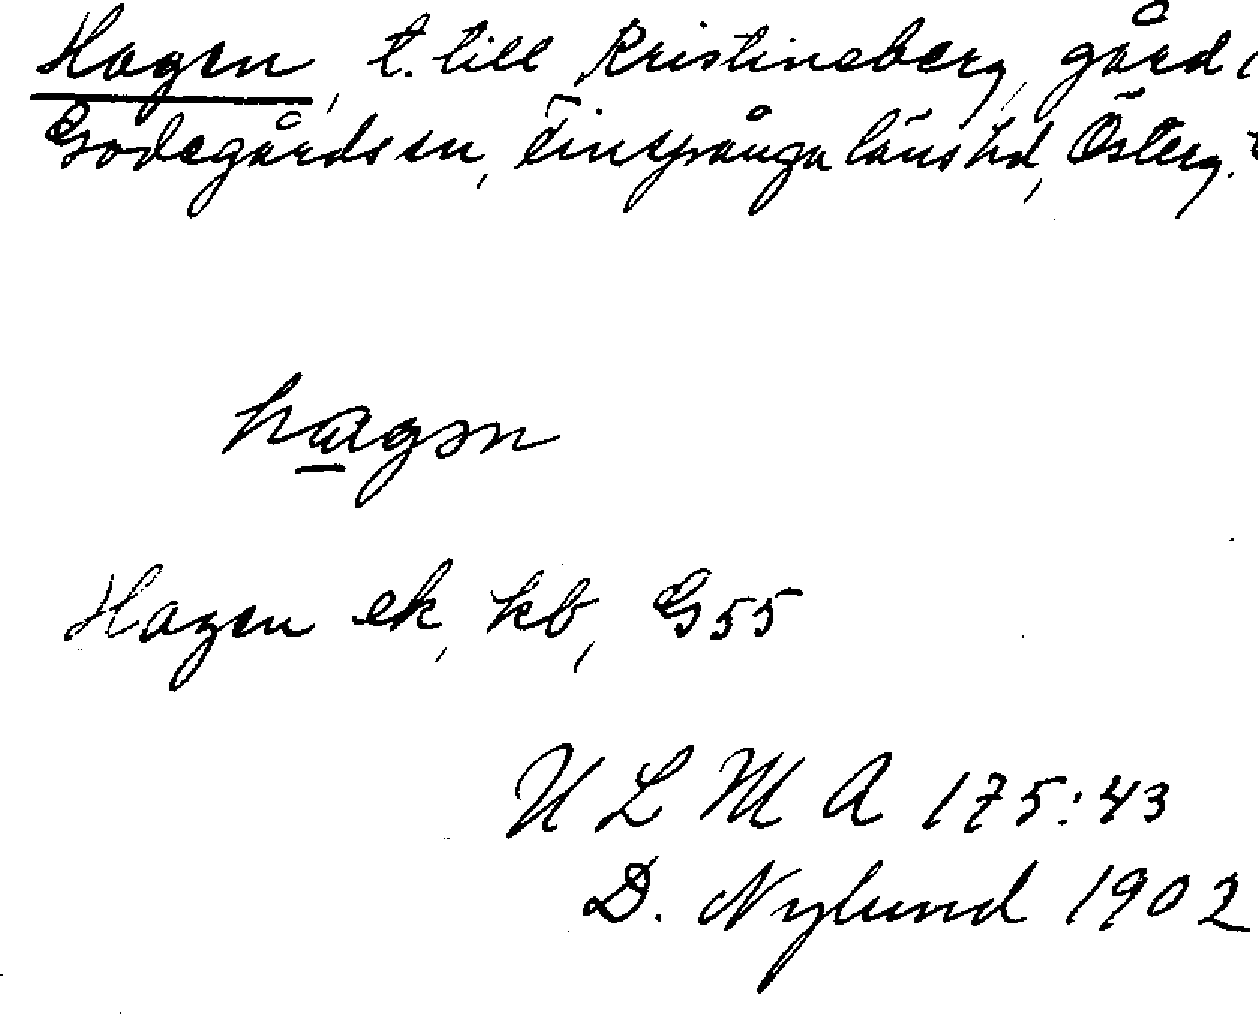 Hagen, t. till Kristineberg, gård i
Godegårds sn, Finspånga läns hd, Österg.
hagən
Hagen ek, kb, G55
U L M A 175:43
D. Nylund 1902